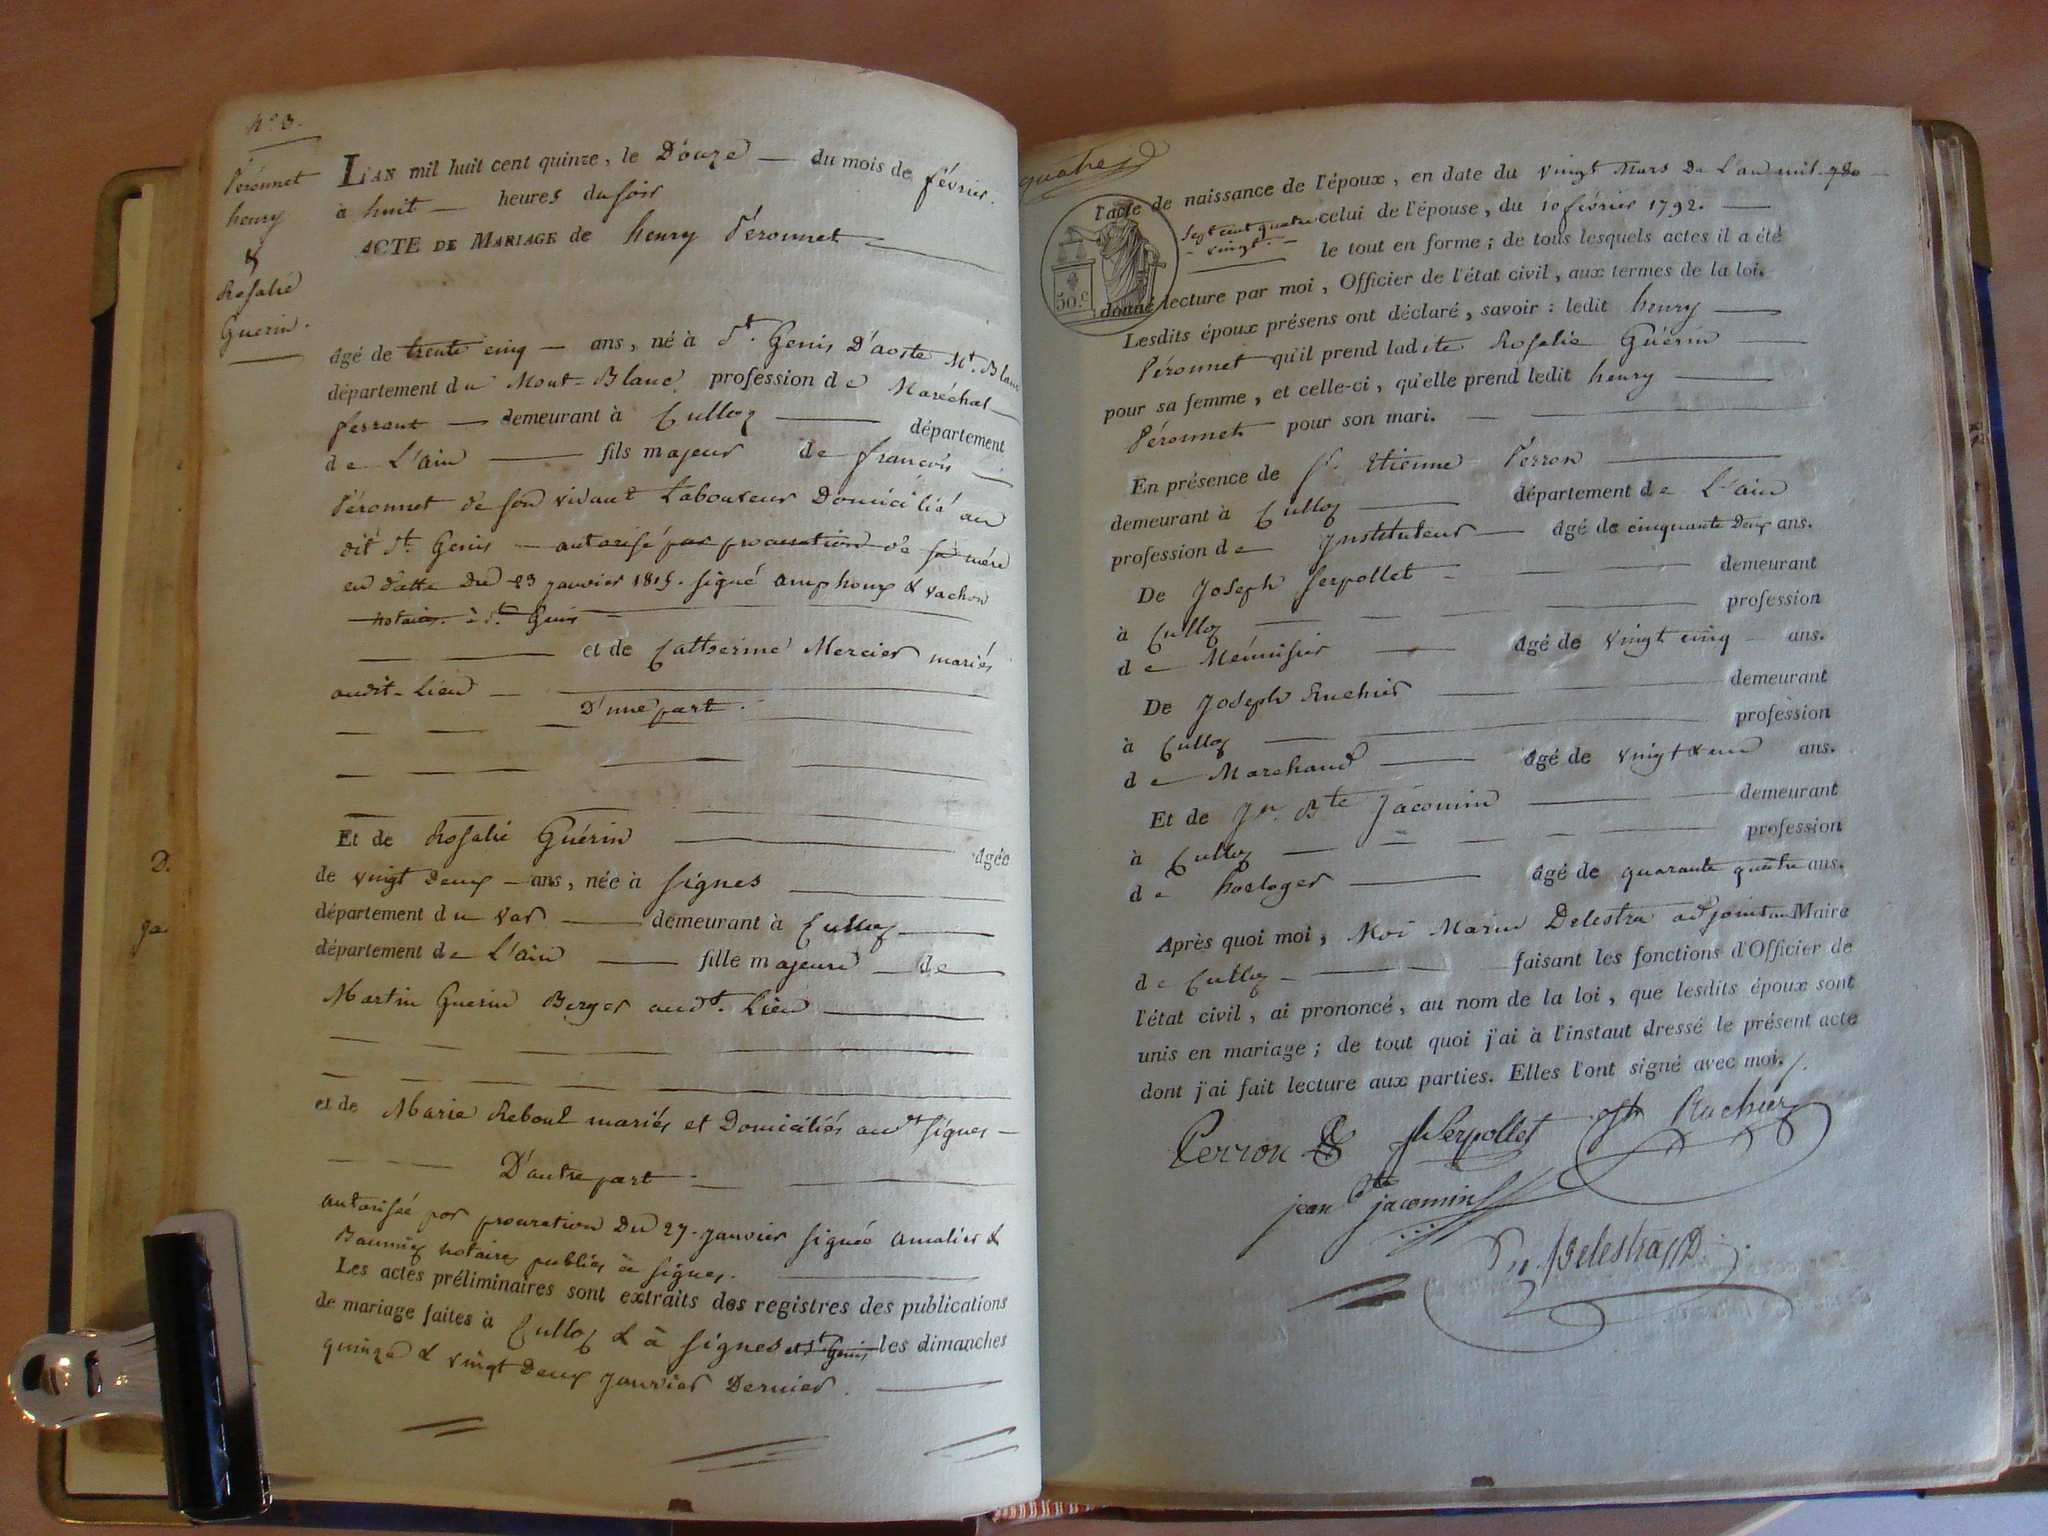 N.o 3.
Péronnet
henry
&
Rosalie
Guerin.
L'AN mil huit cent quinze, le Douze du mois de février.
à huit heures du soir
ACTE DE MARIAGE de henry Péronnet
âgé de trente cinq ans, né à St. Genis D'aoste Mt. Blanc
département du Mont-Blanc profession de Maréchal
ferrant demeurant à Culloz département
de L'ain fils majeur de françois
Péronnet de son vivant Laboureur Domicilié au
dit St. Genis autorisé par procuration de sa mère
en datte Du 23 janvier 1815. signé amphoux & vachon
notaires à St. Genis
et de Catherine Mercier mariés
audit-Lieu
D'une part.
Et de Rosalie Guérin âgée
de vingt Deux ans, née à signes
département du Var demeurant à Culloz
département de L'ain fille majeure de
Martin Guerin Berger audt. Lieu
et de Marie Reboul mariés et Domiciliés audt signes
D'autre part
autorisée par procuration Du 27 janvier signée amalier &
notaires publics à signes.
Les actes préliminaires sont extraits des registres des publications
de mariage faites à Culloz & à signes et St Genis les dimanches
quinze & vingt Deux janvier Dernier.
D.
quatre
50.c
l'acte de naissance de l'époux, en date du vingt Mars De L'an mil 780
sept cent quatre
vingt. celui de l'épouse, du 10 février 1792.
le tout en forme; de tous lesquels actes il a été
donné lecture par moi, Officier de l'état civil, aux termes de la loi.
Lesdits époux présens ont déclaré, savoir: ledit henry
Péronnet qu'il prend ladite Rosalie Guérin
pour sa femme, et celle-ci, qu'elle prend ledit henry
Péronnet pour son mari.
En présence de Sr. Etienne Perron
demeurant à Culloz département de L'ain
profession de Instituteur âgé de cinquante Deux ans.
De Joseph Serpollet demeurant
à Culloz profession
de Menuisier âgé de vingt cinq ans.
De Joseph Ruchier demeurant
à Culloz profession
de Marchand âgé de vingt & un ans.
Et de Jn. Bte Jacomin demeurant
à Culloz profession
de horloger âgé de quarante quatre ans.
Après quoi moi, Moi Marin Delestra adjoint au Maire
de Culloz faisant les fonctions d'Officier de
l'état civil, ai prononcé, au nom de la loi, que lesdits époux sont
unis en mariage; de tout quoi j'ai à l'instant dressé le présent acte
dont j'ai fait lecture aux parties. Elles l'ont signé avec moi.
Perron Serpollet Ruchier
jean Bte jacomin
Delestra